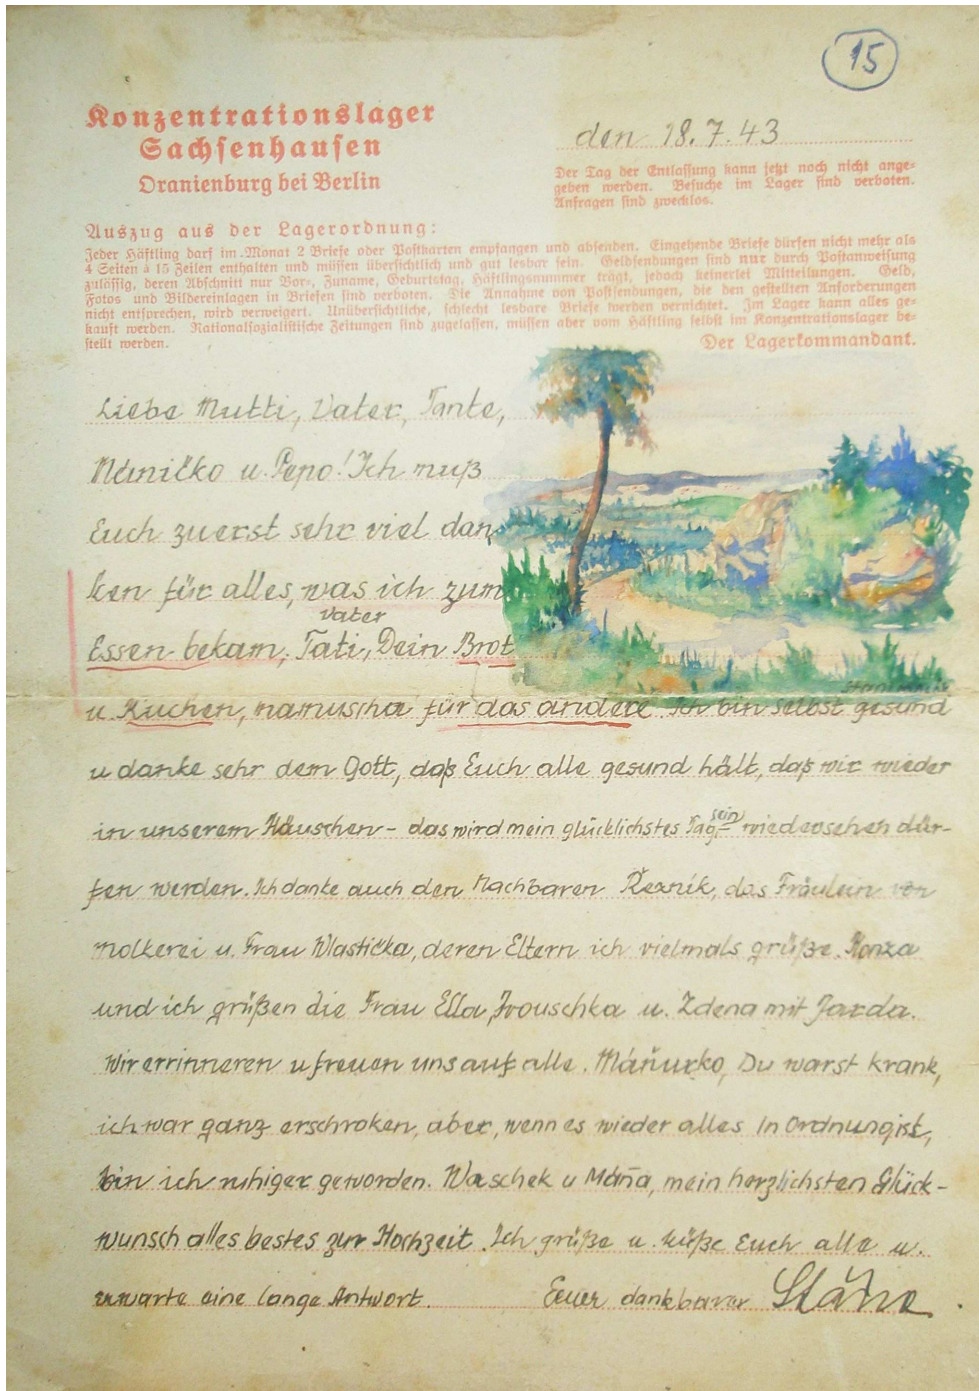 15
Konzentrationslager
Sachsenhausen
Oranienburg bei Berlin
den 18.7.43
Der Tag der Entlassung kann jetzt noch nicht ange-
geben werden. Besuche im Lager sind verboten.
Anfragen sind zwecklos.
Auszug aus der Lagerordnung:
Jeder Häftling darf im Monat 2 Briefe oder Postkarten empfangen und absenden. Eingehende Briefe dürfen nicht mehr als
4 Seiten à 15 Zeilen enthalten und müssen übersichtlich und gut lesbar sein. Geldsendungen sind nur durch Postanweisung
zulässig, deren Abschnitt nur Vor-, Zuname, Geburtstag, Häftlingsnummer trägt, jedoch keinerlei Mitteilungen. Geld,
Fotos und Bildereinlagen in Briefen sind verboten. Die Annahme von Postsendungen, die den gestellten Anforderungen
nicht entsprechen, wird verweigert. Unübersichtliche, schlecht lesbare Briefe werden vernichtet. Im Lager kann alles ge-
kauft werden. Nationalsozialistische Zeitungen sind zugelassen, müssen aber vom Häftling selbst im Konzentrationslager be-
stellt werden.
Der Lagerkommandant.
Liebe Mutti, Vater, Tante,
Máničko u. Pepo! Ich muß
Euch zuerst sehr viel dan
ken für alles, was ich zum
Vater
Essen bekam, Tati, Dein Brot
u. Kuchen, mamuscha für das andere. Ich bin selbst gesund
u danke sehr dem Gott, daß Euch alle gesund hält, daß wir wieder
in unserem Häuschen – das wird mein glücklichstes Tag sein – wiedersehen dür-
fen werden. Ich danke auch den Nachbaren Řezník, das Fräulein von
Molkerei u. Frau Wlastička, deren Eltern ich vielmals grüße. Honza
und ich grüßen die Frau Ella, Irouschka u. Zdena mit Jarda.
Wir errinneren u freuen uns auf alle. Máňurko, Du warst krank,
ich war ganz erschroken, aber, wenn es wieder alles in Ordnung ist,
bin ich ruhiger geworden. Waschek u Máňa, mein herzlichsten Glück-
wunsch alles bestes zur Hochzeit. Ich grüße u. küße Euch alle u.
erwarte eine lange Antwort. Euer dankbarer Stáňa.